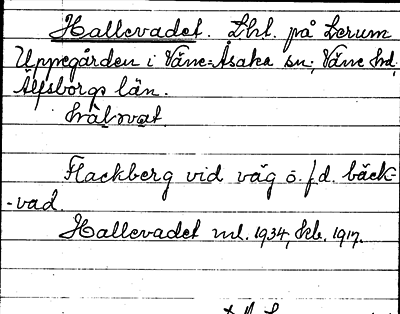 Hallevadet. Lht. på Lerum
Uppegården i Väne-Åsaka sn; Väne hd,
Älfsborgs län.
Flackberg vid väg o. f.d. bäck-
-vad.
Hallevadet ml. 1934, Skb. 1917.